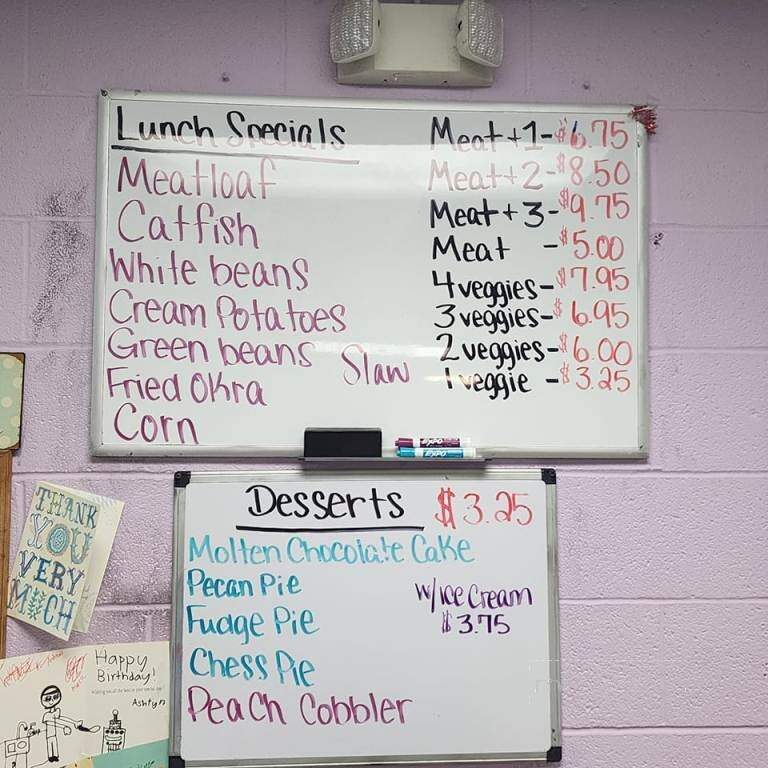 Lunch Specials
Meatloaf
Catfish
White beans
Cream Potatoes
Green beans
Slaw
Fried Okra
Corn
Meat +1 - $6.75
Meat + 2 - $8.50
Meat + 3 - $9.75
Meat - $5.00
4 veggies - $7.95
3 veggies - $6.95
2 veggies - $6.00
1 veggie - $3.25
EXPO
EXPO
Desserts $3.25
Molten Chocolate Cake
Pecan Pie
Fudge Pie
Chess Pie
Peach Cobbler
w/ice Cream
$3.75
THANK
YOU
VERY
MUCH
Happy
Birthday!
Ashtyn